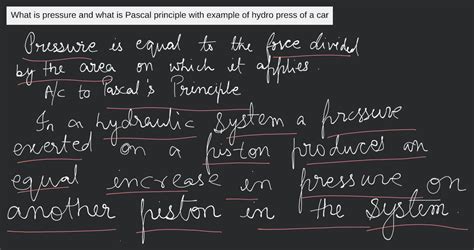 What is pressure and what is Pascal principle with example of hydro press of a car
Pressure is equal to the force divided
by the area on which it applies.
A/c to Pascal's Principle
In a hydraulic system a pressure
exerted on a piston produces an
equal increase in pressure on
another piston in the system.